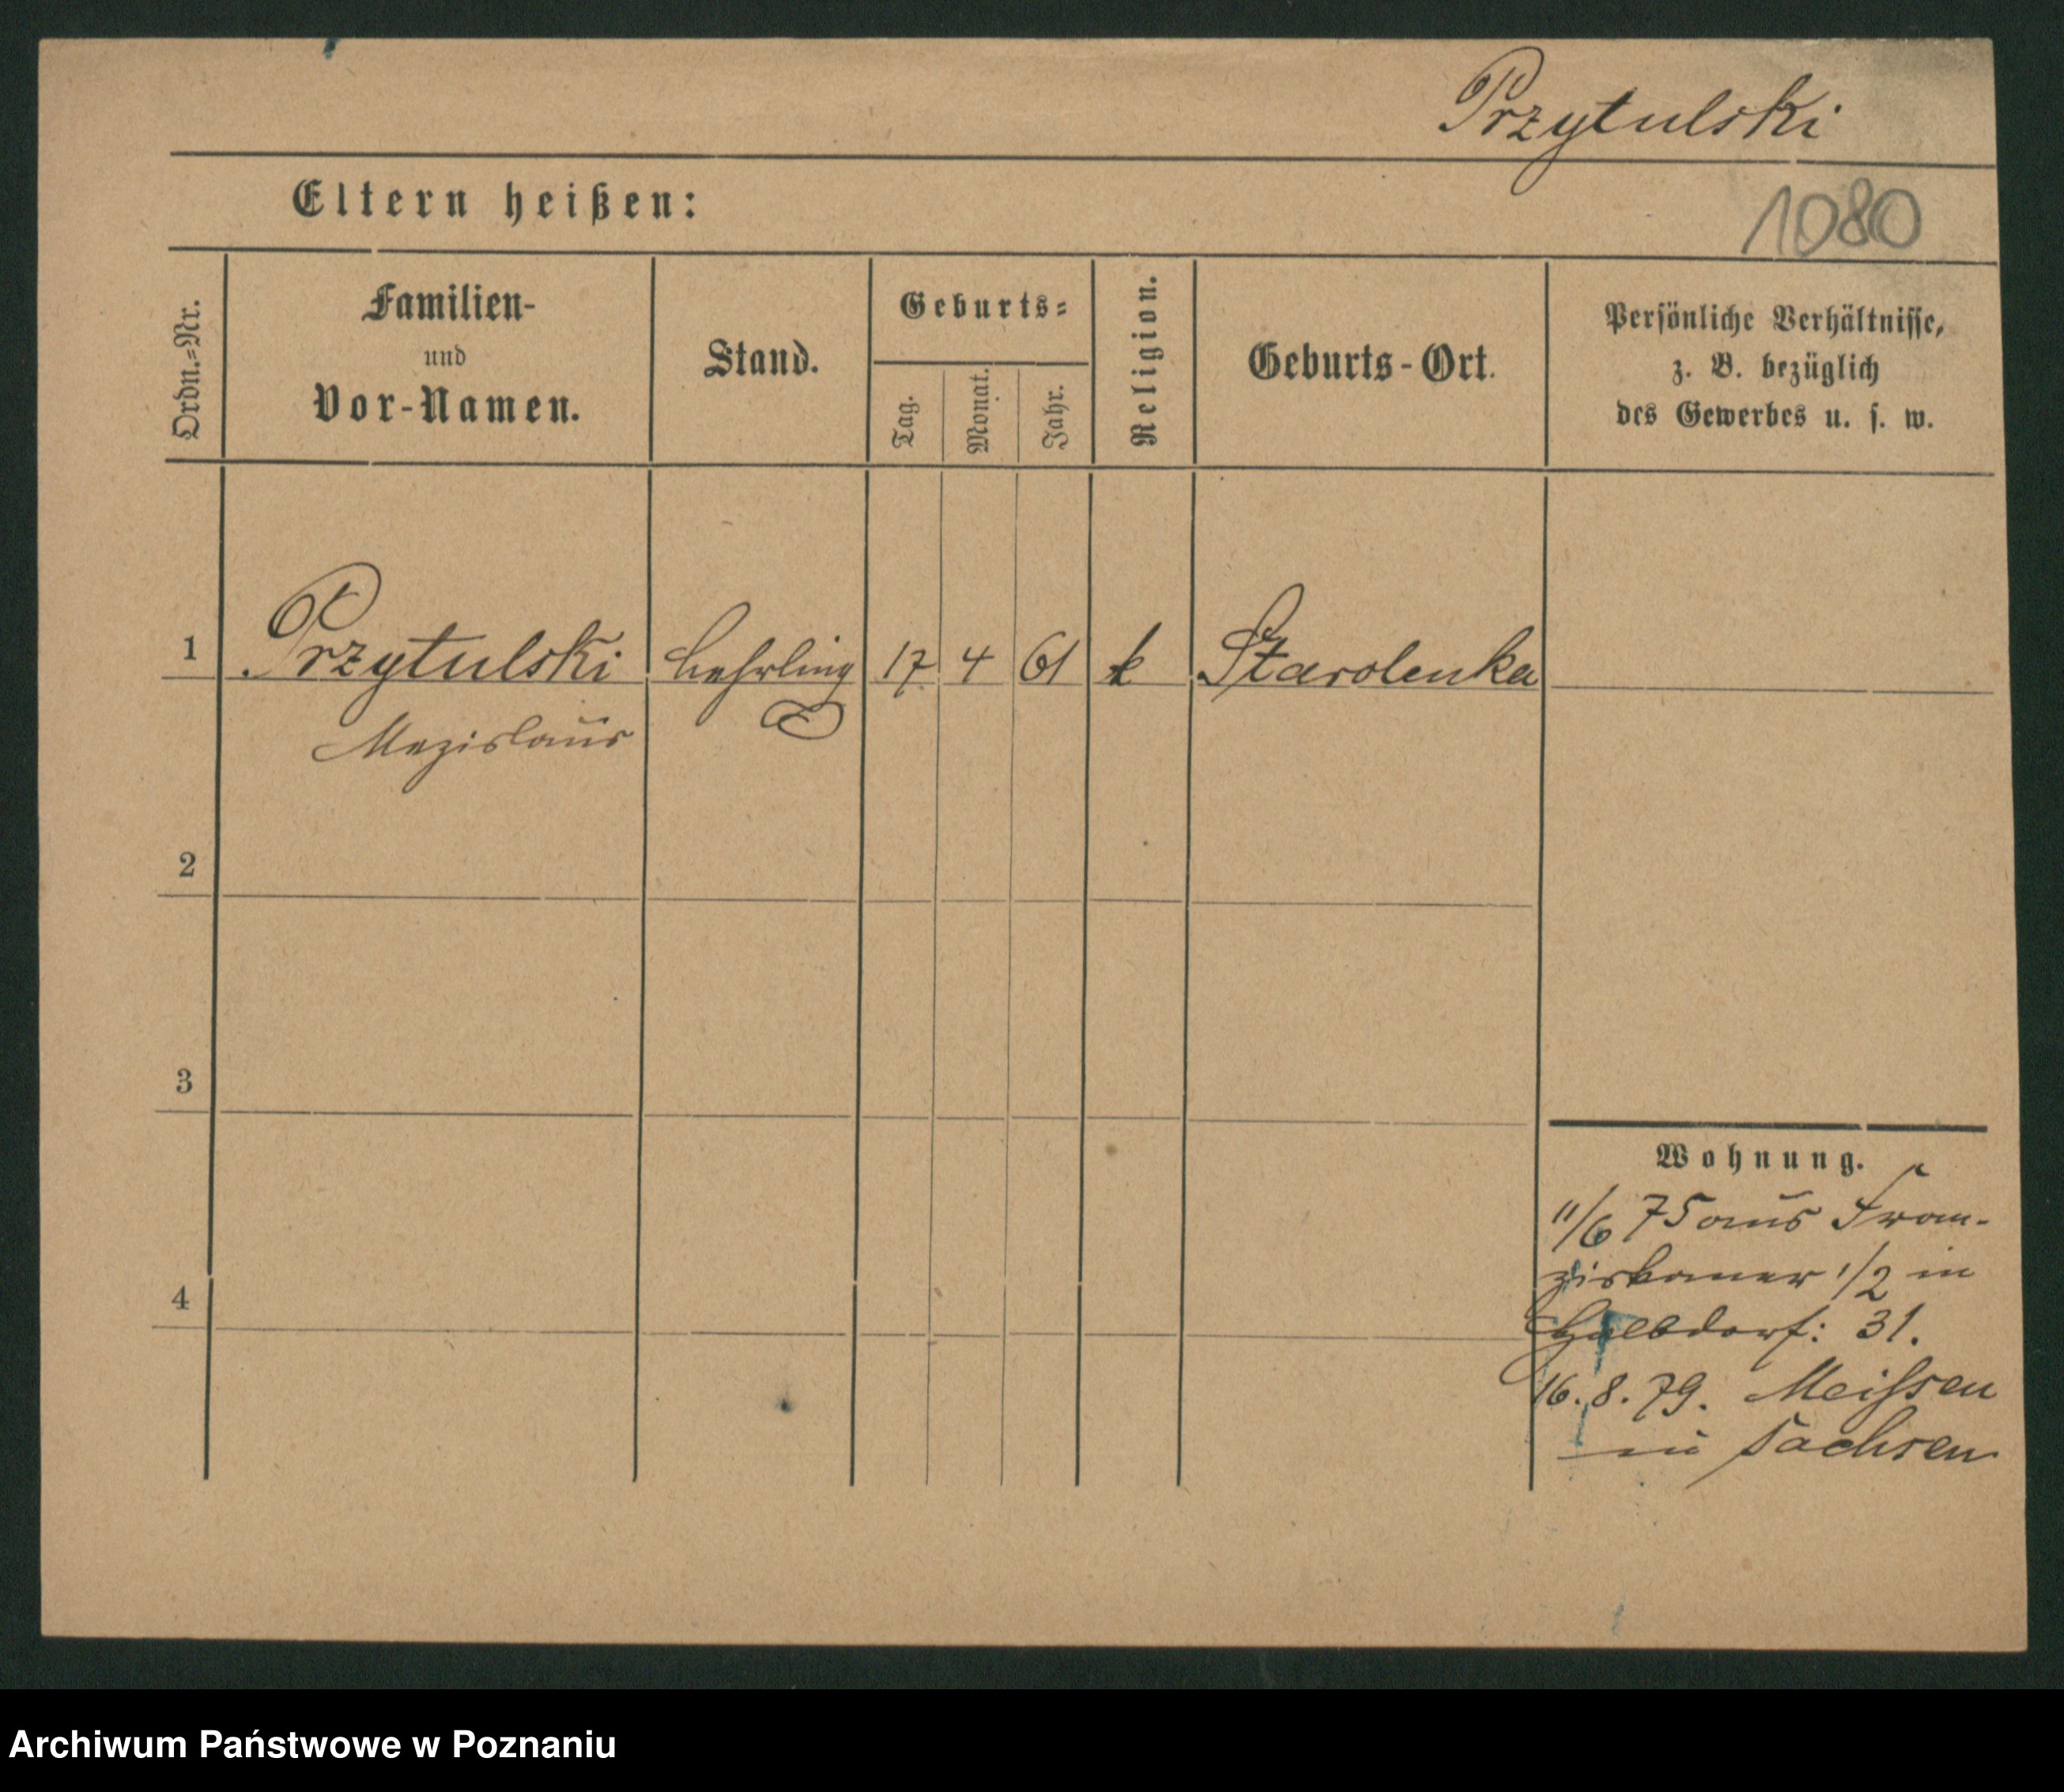 Przytulski
Eltern heißen:
1080
Ordn.-Nr.
Familien-
und
Vor-Namen.
Stand.
Geburts-
Tag.
Monat.
Jahr.
Religion.
Geburts-Ort.
Persönliche Verhältnisse,
z. B. bezüglich
des Gewerbes u. s. w.
1 Przytulski Lehrling 17 4 61 k Starolenka
Mezislaus
2
3
4
Wohnung.
11/6 75 aus Fran-
ziskaner 1/2 in
Halbdorf: 31.
16.8.79. Meissen
in Sachsen
Archiwum Państwowe w Poznaniu